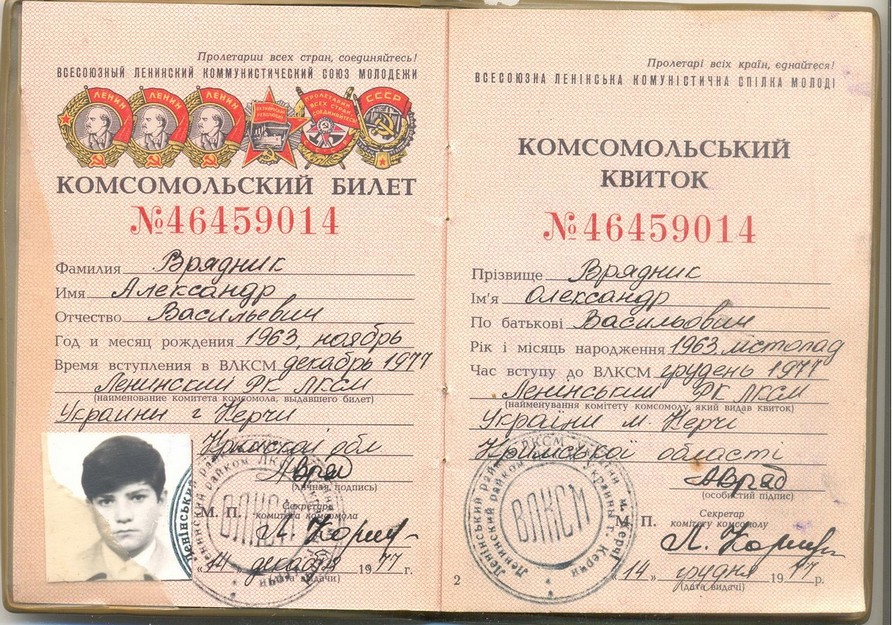 Пролетарии всех стран, соединяйтесь!
ВСЕСОЮЗНЫЙ ЛЕНИНСКИЙ КОММУНИСТИЧЕСКИЙ СОЮЗ МОЛОДЕЖИ
ЛЕНИН ЛЕНИН ЛЕНИН ПРОЛЕТАРИИ ВСЕХ СТРАН СОЕДИНЯЙТЕСЬ СССР
КОМСОМОЛЬСКИЙ БИЛЕТ
№46459014
Фамилия Врядник
Имя Александр
Отчество Васильевич
Год и месяц рождения 1963, ноябрь
Время вступления в ВЛКСМ декабрь 1977
Ленинский РК ЛКСМ
(наименование комитета комсомола, выдавшего билет)
Украины г Керчи
Крымской обл
АВряд
(личная подпись)
М. П. Секретарь
комитета комсомола
"14" декабря 1977 г.
(дата выдачи)
Пролетарі всіх країн, єднайтеся!
ВСЕСОЮЗНА ЛЕНІНСЬКА КОМУНІСТИЧНА СПІЛКА МОЛОДІ
КОМСОМОЛЬСЬКИЙ
КВИТОК
№46459014
Прізвище Врядник
Ім'я Олександр
По батькові Васильович
Рік і місяць народження 1963, листопад
Час вступу до ВЛКСМ грудень 1977
Ленінський РК ЛКСМ
(найменування комітету комсомолу, який видав квиток)
України м. Керчі
Кримської області
АВряд
(особистий підпис)
М. П. Секретар
комітету комсомолу
"14" грудня 1977 р.
(дата видачі)
ВЛКСМ
2